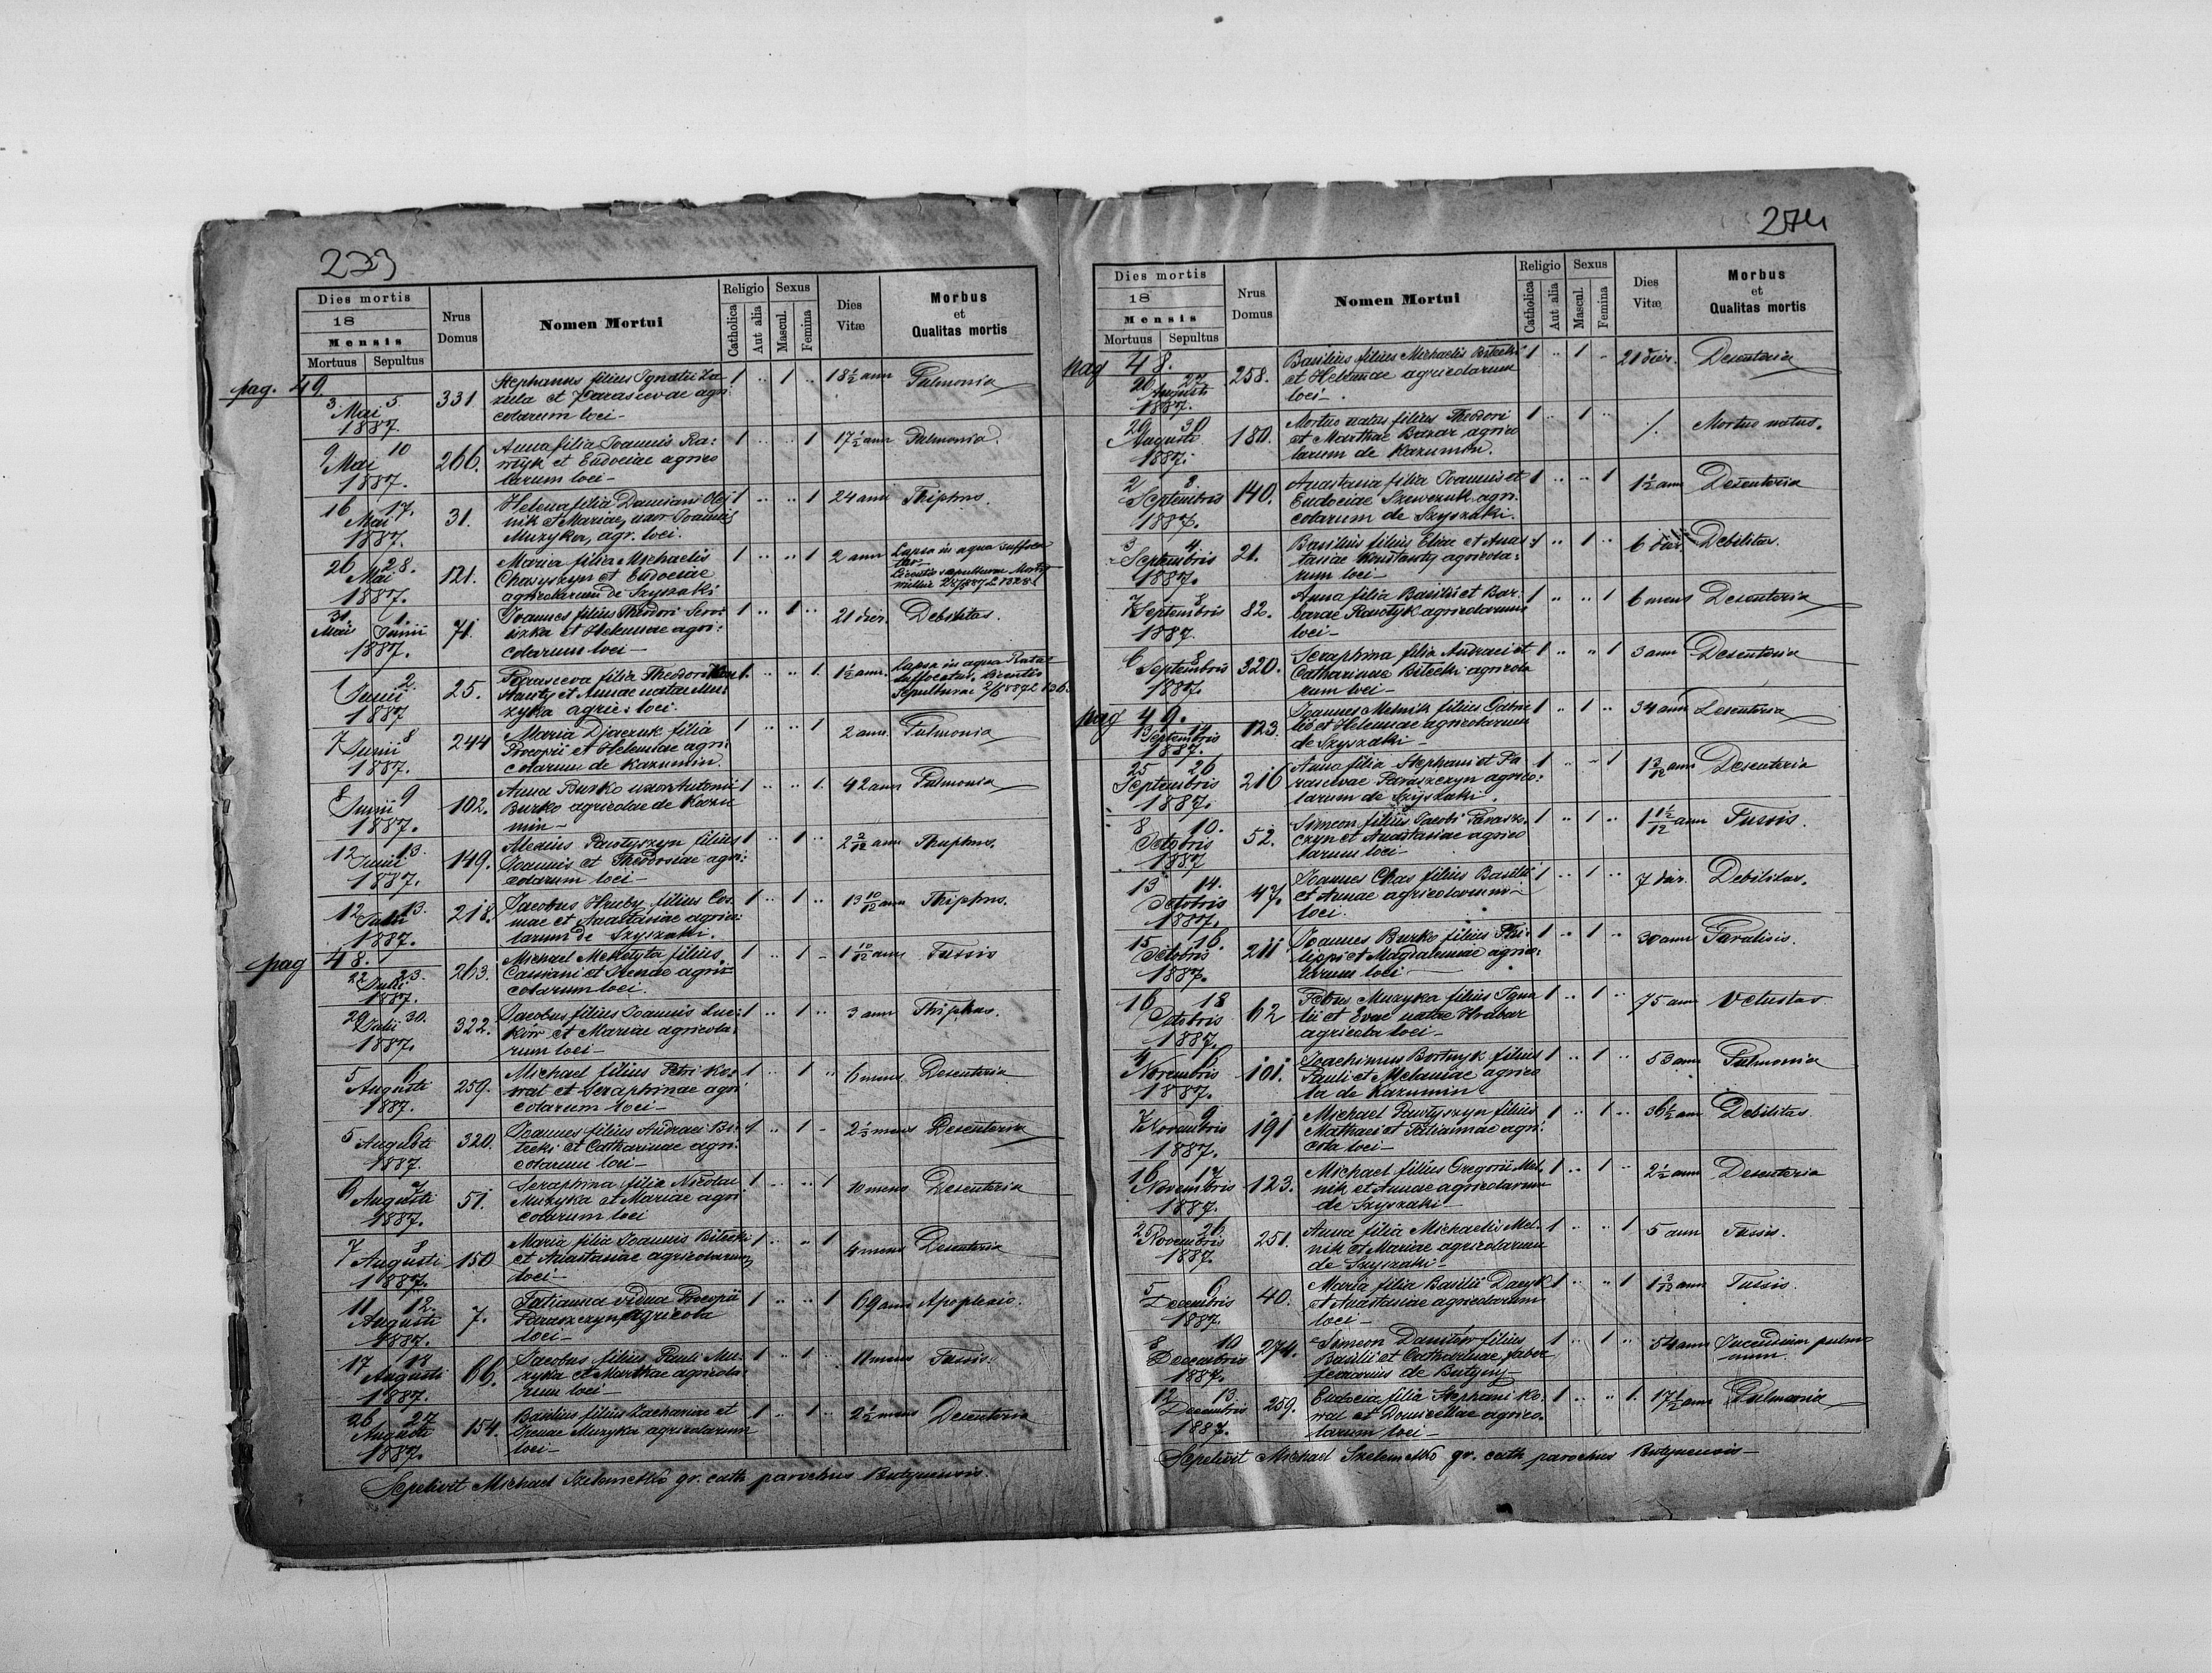 273
Dies mortis
18
Mensis
Mortuus Sepultus
Nrus Domus
Nomen Mortui
Religio
Catholica
Aut alia
Sexus
Mascul.
Femina
Dies Vitæ
Morbus et Qualitas mortis
pag. 49
3 Mai 5 1887. 331. Stephanus filius Ignatii
et Parascevae agri:
colarum loci — 1 .. 1 .. 18½ ann Pulmonia
9 Mai 10 1887. 266. Anna filia Joannis Ra:
wtyk et Eudociae agrico
larum loci — 1 .. .. 1 17½ ann Pulmonia.
16 Mai 17. 1887. 31. Helena filia Damiani Olej
nik et Mariae, uxor Joannis
Muzyka, agr. loci. 1 .. .. 1 24 ann Thiphus.
26 Mai 28. 1887. 121. Maria filia Michaelis
et Eudociae
agricolarum de Szyszaki 1 .. .. 1 2 ann Lapsa in aqua suffoca
tur
31. Mai 1. Junii 1887. 71. Joannes filius Theodori
et Helenae agri:
colarum loci — 1 .. 1 .. 21 dier. Debilitas.
1 Junii 2. 1887 25. Parasceva filia Theodori
et Annae natae Mu:
zyka agric: loci. 1 .. .. 1. 1½ ann. Lapsa in aqua
suffocatur.
Sepulturae
7 Junii 8 1887. 244 Maria Djaczuk filia
Procopii et Helenae agri:
colarum de Kazumin. 1 .. .. 1 2 ann. Pulmonia
8 Junii 9 1887. 102. Anna Burko uxor Antonii
Burko agricolae de Kazu
min — 1 .. .. 1. 42 ann Pulmonia
12 Junii 13. 1887. 149. Alexius Pawtyszyn filius
Joannis et Theodosiae agri:
colarum loci — 1 .. 1 .. 2 2/12 ann Thiphus.
12 13. 1887. 218. Jacobus Hruby filius Cos
mae et Anastasiae agrico:
larum de Szyszaki. 1 .. 1 .. 13 10/12 ann Thiphus.
pag 48.
22 Julii 23. 1887. 263. Michael filius
Cassiani et Irenae agri:
colarum loci. 1 .. 1 .. 1 10/12 ann Tussis
29 Julii 30. 1887. 322. Jacobus filius Joannis Luc:
ków et Mariae agricola:
rum loci — 1 .. 1 .. 3 ann Thiphus.
5 Augusti 6 1887. 259. Michael filius Petri Ko:
wal et Seraphinae agri:
colarum loci — 1 .. 1 .. 6 mens. Desenteria
5 Augusti 6 1887. 320. Joannes filius Andraei Bi:
tecki et Catharinae agri:
colarum loci — 1 .. 1 .. mens Desenteria
6 Augusti 7 1887. 51. Seraphina filia Nicolai
Muzyka et Mariae agri:
colarum loci 1 .. .. 1 10 mens Desenteria
7 Augusti 8 1887. 150 Maria filia Joannis Bitecki
et Anastasiae agricolarum
loci — 1 .. .. 1 4 mens Desenteria
11 Augusti 12. 1887. 7. Tatianna vidua Procopii
Paraszczyn, agricola
loci — 1 .. .. 1 69 ann Apoplexio.
17 Augusti 18 1887. 66. Jacobus filius Pauli Mu:
zyka et Marthae agricola:
rum loci — 1 .. 1 .. 11 mens Tussis.
26 Augusti 27 1887. 154. Basilius filius Zachariae et
Irenae Muzyka agricolarum
loci — 1 .. 1 .. 2½ mens Desenteria
Sepelivit Michael gr. cath parochus Butynensis.
274
Dies mortis
18
Mensis
Mortuus Sepultus
Nrus Domus
Nomen Mortui
Religio
Catholica
Aut alia
Sexus
Mascul.
Femina
Dies Vitæ
Morbus et Qualitas mortis
pag 48.
26 Augusti 27 1887. 258. Basilius filius Michaelis Bitecki
et Helenae agricolarum
loci — 1 .. 1 .. 21 dier. Desenteria
29 Augusti 30 1887. 180. Mortuo natus filius Theodori
et Marthae Bazar agrico
larum de Kazumin. 1 .. 1 .. /. Mortuo natus.
2 Septembris 3. 1887. 140. Anastasia filia Joannis et
Eudociae Szewczuk agri:
colarum de Szyszaki. 1 .. .. 1 1½ ann Desenteria
3 Septembris 4. 1887. 21. Basilius filius Eliae et Anas
tasiae agricola:
rum loci — 1 .. 1 .. 6 Debilitas.
7 Septembris 8 1887. 82. Anna filia Basilii et Bar
barae Rawtyk agricolarum
loci — 1 .. .. 1 6 mens Desenteria
6 Septembris 8 1887. 320. Seraphina filia Andraei et
Catharinae Bitecki agricola
rum loci — 1 .. .. 1 3 ann Desenteria
pag 49.
13 Septembris 14 1887. 123. Joannes Melnik filius Gabrie
lis et Helenae agricolarum
de Szyszaki — 1 .. 1 .. 34 ann Desenteria
25 Septembris 26 1887. 216 Anna filia Stephani et Pa
rascevae Paraszczyn agrico:
larum de Szyszaki. 1 .. .. 1 ann Desenteria
8 Octobris 10. 1887 52. Simeon filius Jacobi Parasz:
czyn et Anastasiae agrico
larum loci — 1 .. 1 .. ann Tussis.
13 Octobris 14. 1887. 47. Joannes Chas filius Basilii
et Annae agricolarum
loci. 1 .. 1 .. 7 dier. Debilitas.
15 Octobris 16. 1887. 211 Joannes Burko filius Phi:
lippi et Magdalenae agrico:
larum loci — 1 .. 1 .. 30 ann Paralisis.
16 Octobris 18 1887. 62 Petrus Muzyka filius Igna
tii et Evae natae Hrabar
agricola loci — 1 .. 1 .. 75 ann Vetustas
4 Novembris 6 1887. 101. Joachimus Bortnyk filius
Pauli et Melaniae agrico
la de Kazumin 1 .. 1 .. 53 ann Pulmonia
7 Novembris 9 1887. 191 Michael Pawtyszyn filius
Mathaei et Tatiannae agri:
cola loci — 1 .. 1 .. 36½ ann Debilitas.
16 Novembris 17 1887. 123. Michael filius Gregorii Mel:
nik et Annae agricolarum
de Szyszaki — 1 .. 1 .. 2½ ann Desenteria
25 Novembris 26. 1887. 251. Anna filia Michaelis Mel:
nik et Mariae agricolarum
de Szyszaki — 1 .. .. 1 5 ann Tussis.
5 Decembris 6 1887. 40. Maria filia Basilii Dacyk
et Anastasiae agricolarum
loci — 1 .. .. 1 ann Tussis.
8 Decembris 10 1887. 274. Simeon Daniłów filius
Basilii et Catharinae, faber
ferrarius de Butyny 1 .. 1 .. 54 ann Incendium pulmo
num.
12 Decembris 13 1887. 259. Eudocia filia Stephani Ko:
wal et Domicellae agrico:
larum loci — 1 .. .. 1. 17½ ann Pulmonia
Sepelivit Michael gr. cath parochus Butynensis —